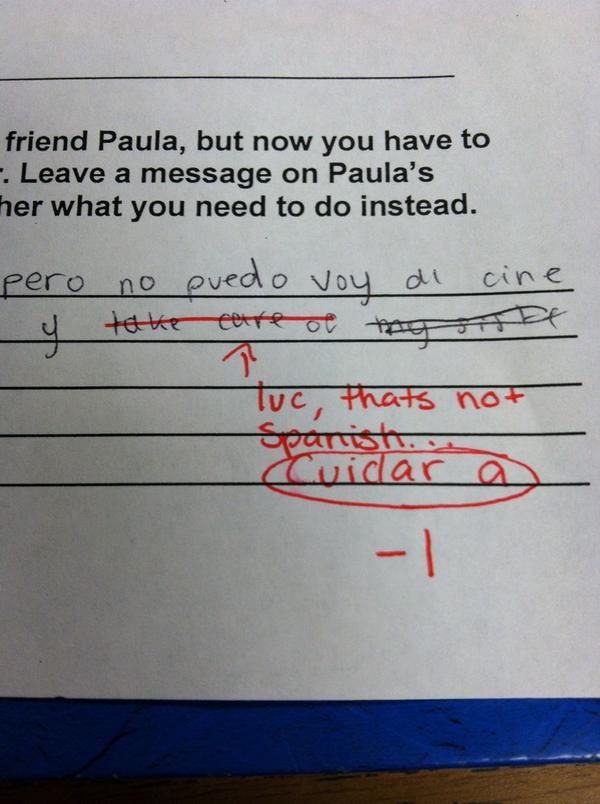 friend Paula, but now you have to
r. Leave a message on Paula's
her what you need to do instead.
pero no puedo voy al cine
y take care of my sister
luc, thats not
Spanish...
Cuidar a
-1